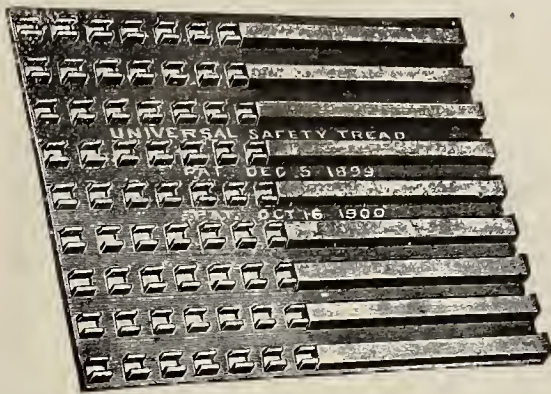 UNIVERSAL SAFETY TREAD
PAT. DEC. 5 1899
PAT. OCT 16 1900